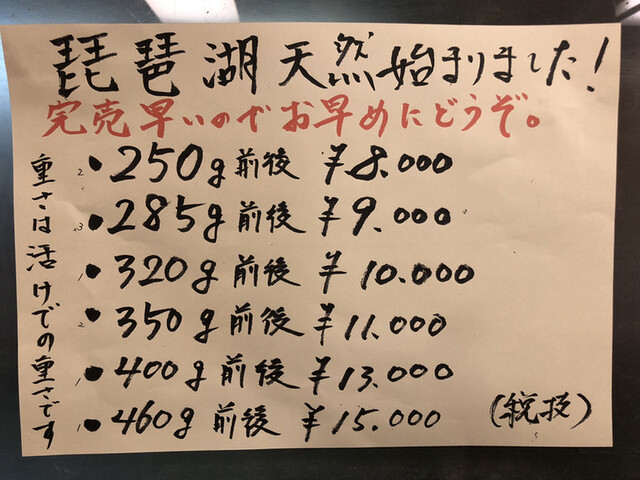 琵琶湖天然始まりました!
完売早いのでお早めにどうぞ。
重さは活けでの重さです
2 ●250g前後 ¥8.000
3 ●285g前後 ¥9.000
1 ●320g前後 ¥10.000
2 ●350g前後 ¥11.000
1 ●400g前後 ¥13.000
1 ●460g前後 ¥15.000
(税抜)